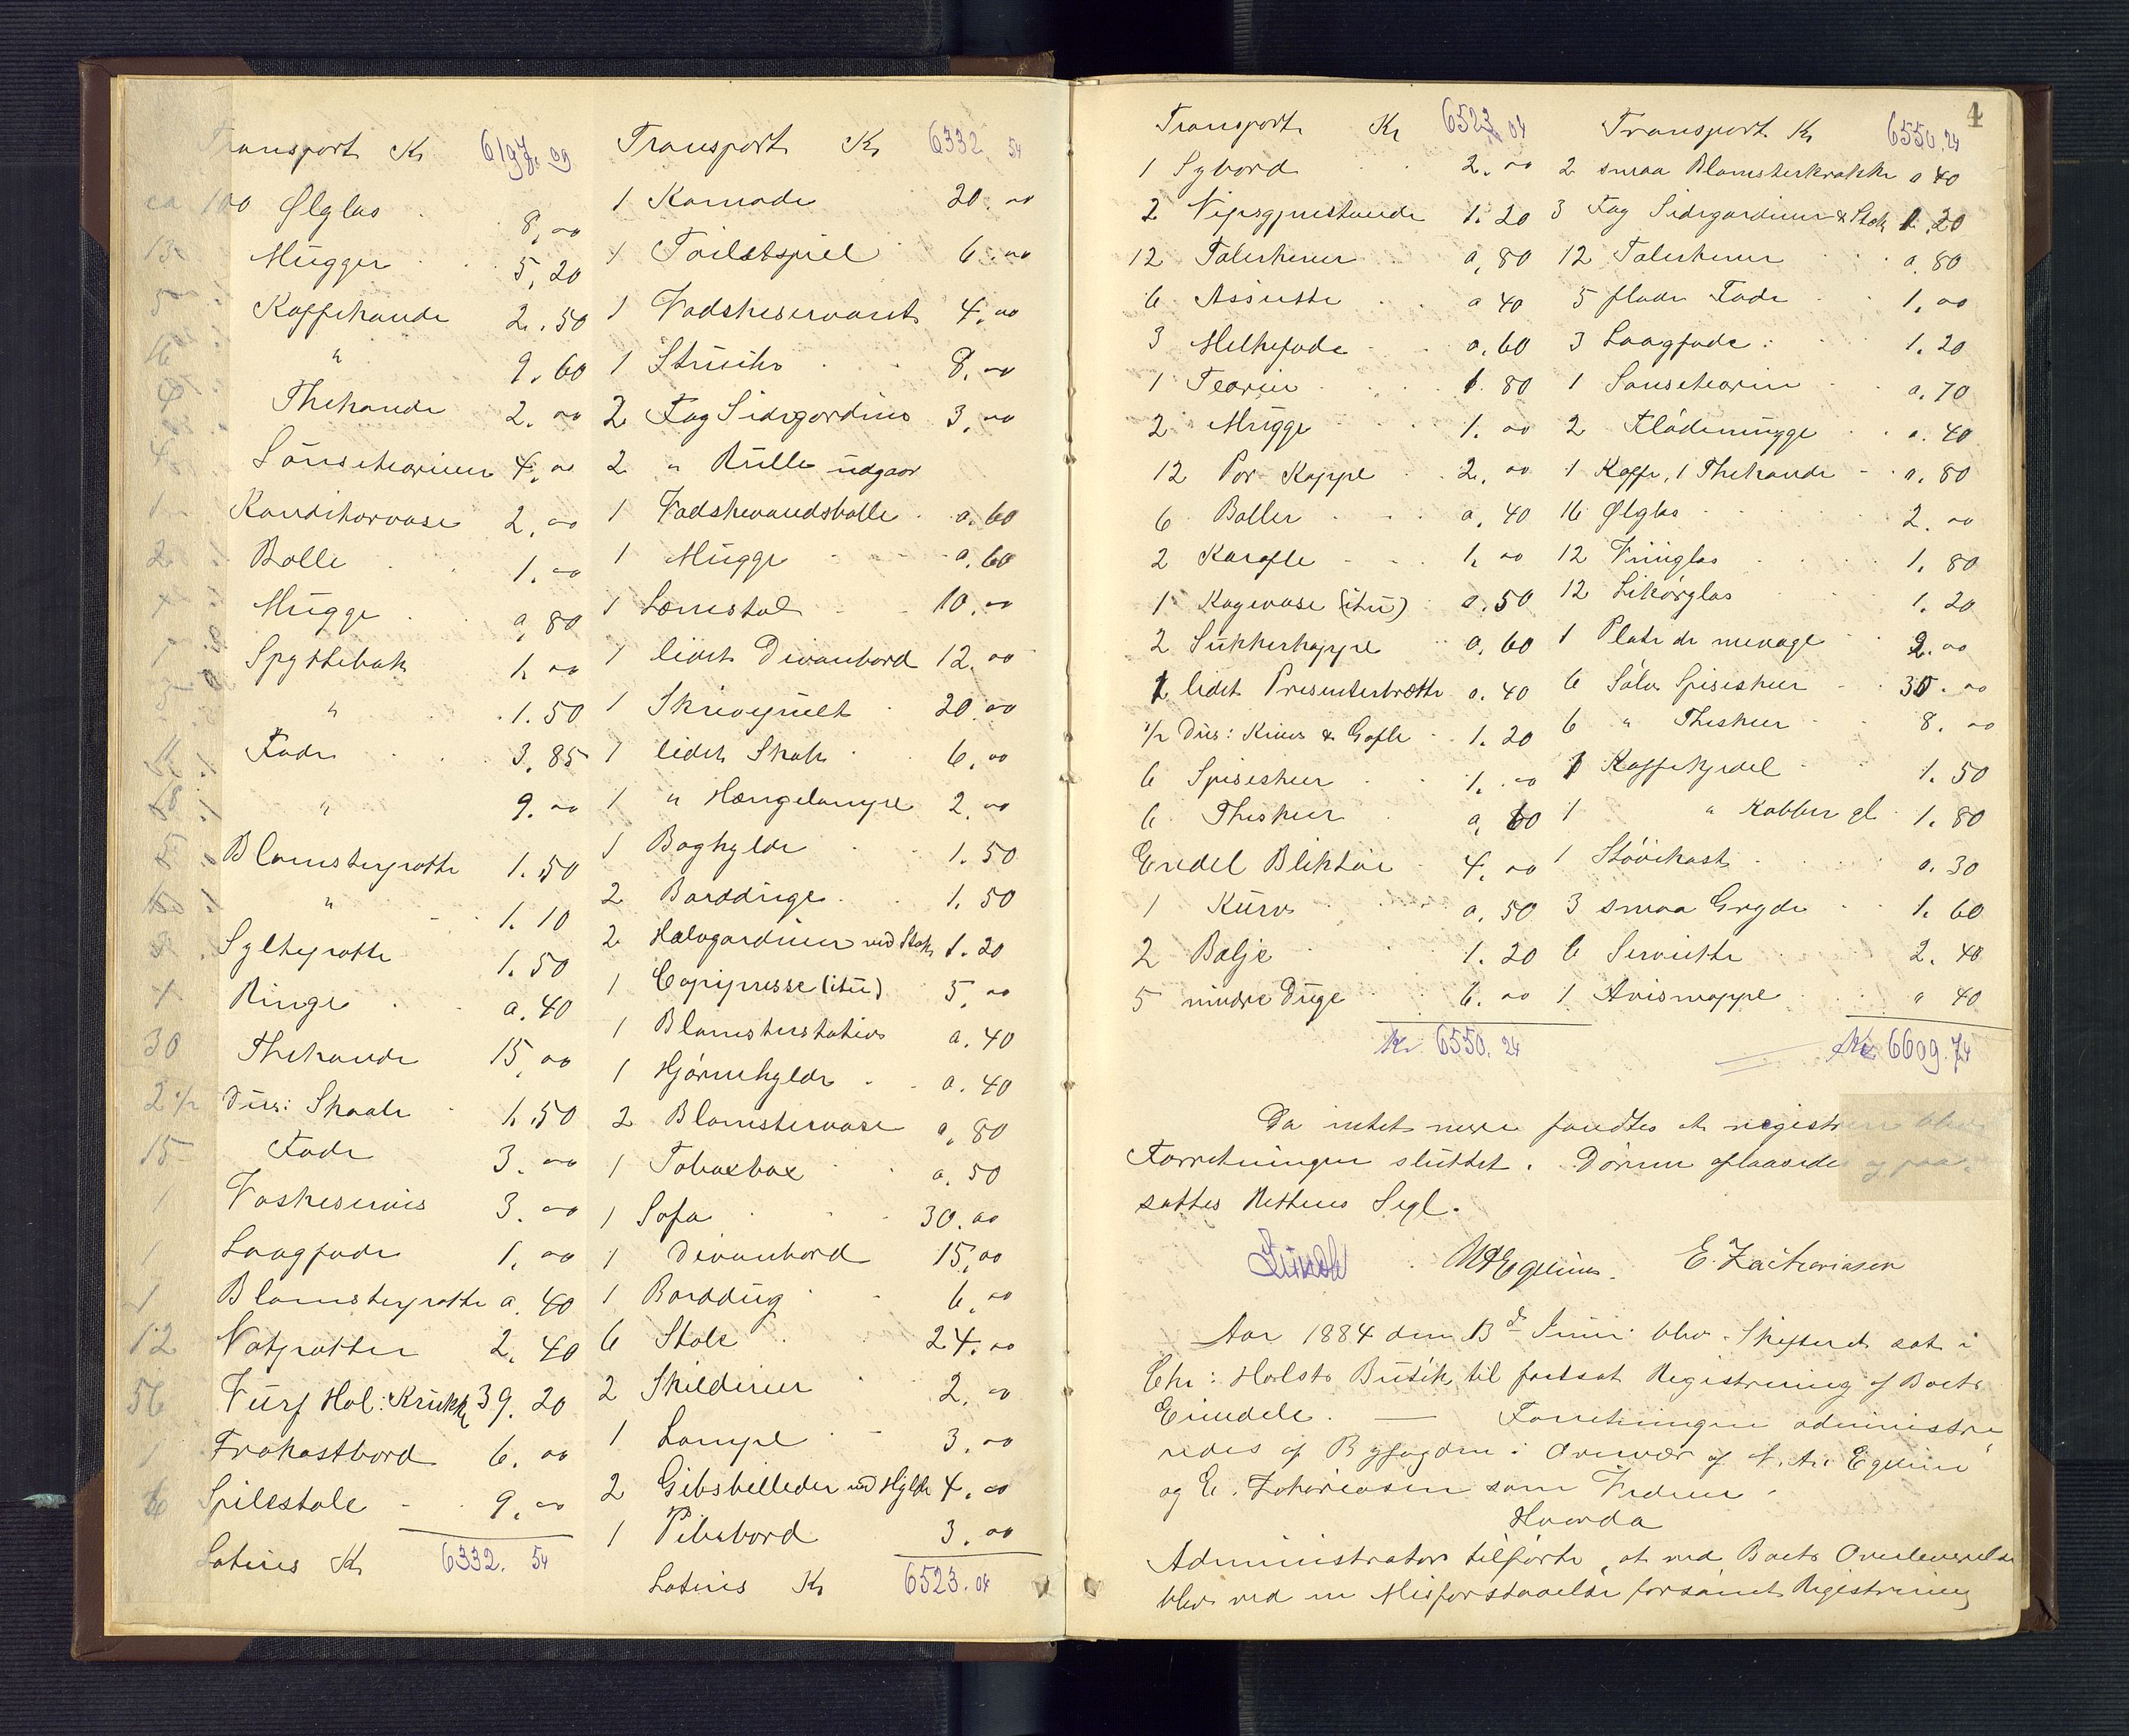 Transport Kr 6197.09
ca 100 Ølglas 8,00
13 Mugger 5,20
5 Kaffekande 2.50
16 " 9.60
Thekande 2.00
4 Sauseteariner 4.00
1 Kanditorvase 2.00
2 Bolle 1.00
Mugge 0,80
Spyttebak 1.00
" 1.50
Fade 3.85
" 9.00
Blomsterpotte 1.50
" 1.10
Syltepotte 1.50
Ringe 0.40
30 Thekande 15,00
2 1/2 Dus: Skaale 1.50
15 Fade 3.00
1 Vaskeservis 3.00
1 Laagfade 1.00
1 Blomsterpotte 0.40
12 Natpotter 2.40
56 Furf Hol: Krukke 39.20
1 Frokostbord 6.00
6 Spilestole 9.00
Lateris Kr 6332.54
Transport Kr 6332.54
1 Komode 20.00
1 Toiletspeil 6.00
1 Vadskeservant 4.00
1 Struiks 8.00
2 Fag Sidegardins 3.00
2 " Rulle udgaar
1 Vadskevandsbolle 0.60
1 Mugge 0.60
1 Lænestol 10.00
1 lidet Divanbord 12.00
1 Skrivepult 20.00
1 lidet Skab 6.00
1 " Hængelampe 2.00
1 Boghylde 1.50
2 Bordduge 1.50
2 Halvgardiner med Stok 1.20
1 Copipresse (itu) 5.00
1 Blomsterstativ 0.40
1 Hjørnehylde 0.40
2 Blomstervase 0,80
1 Tobaxbox 0.50
1 Sofa 30.00
1 Divanbord 15.00
1 Borddug 6.00
6 Stole 24.00
2 Skilderier 2.00
1 Lampe 3.00
2 Gibsbilleder med Hylde 4.00
1 Pibebord 3.00
Lateris Kr 6523.04
4
Transport Kr 6523.04
1 Sybord 2.00
2 Nipsgjenstande 1.20
12 Talerkener 0,80
6 Assiette 0 40
3 Melkefade 0.60
1 Tearin 1.80
2 Mugge 1.00
12 Par Koppe 2.00
6 Boller 0,40
2 Karafle 1.00
1 Kagevase (itu) 0.50
2 Sukkerkoppe 0,60
1 lidet Presenterbrætte 0.40
1/2 Dus: Knive & Gafle 1.20
6 Spiseskeer 1.00
6 Theskeer 0,60
Endel Bliktøi 4.00
1 Kurv 0,50
2 Balje 1.20
5 mindre Duge 6.00
Kr. 6550.24
Transport Kr 6550.24
2 smaa Blomsterkrakke 0 40
3 Fag Sidegardiner & Stok 1.20
12 Talerkener 0.80
5 flade Fade 1.00
3 Laagfade: 1.20
1 Sausetearin 0.70
2 Flødemugge 0.40
1 Kaffe, 1 Thekande 0.80
16 Ølglas 2.00
12 Vinglas 1.80
12 Likørglas 1.20
1 Plat de menage 2.00
6 Sølv Spiseskeer 30.00
6 " Theskeer 8.00
1 Kaffekjedel 1.50
1 " Kobber gl. 1.80
1 Støvekost 0.30
3 smaa Gryde 1.60
6 Serviette 2.40
1 Avismappe " 40
Kr 6609.74
Da intet mere fandtes at registrere blev
Forretningen sluttet. Dørene aflaasede og paa-
sattes Rettens Segl.
E. Zachariasen
Aar 1884 den 13de Juni blev Skifteret sat i
Chr: Holsts Butik til fortsat Registrering af Boets
Eiendele. — Forretningen administre
redes af Byfogden i Overvær af N. A. Egenæs
og E. Zakariasen som Vidner.
Hvorda
Administrator tilførte, at ved Boets Overleverelse
blev ved en Misforstaaelse forsømt Registrering